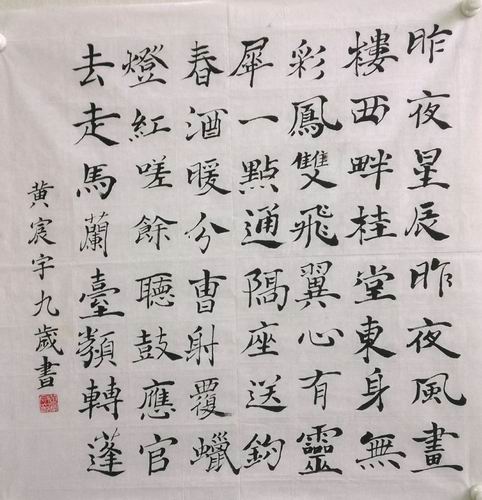 昨夜星辰昨夜風畫
樓西畔桂堂東身無
彩鳳雙飛翼心有靈
犀一點通隔座送鈎
春酒暖分曹射覆蠟
燈紅嗟餘聽鼓應官
去走馬蘭臺類轉蓬
黄宸宇九歲書